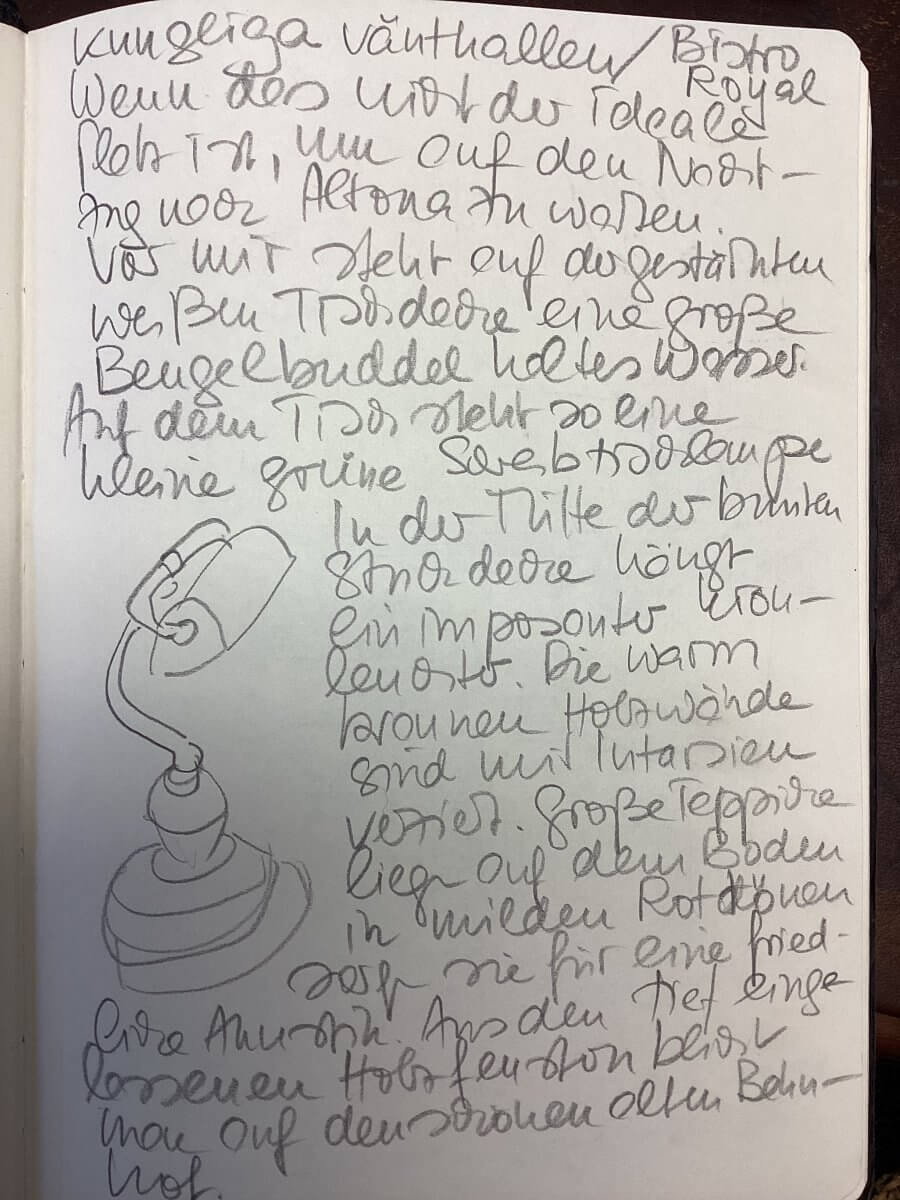 Kungliga vänthallen/Bistro
Royal
Wenn das nicht der ideale
Platz ist, um auf den Nacht-
zug nach Altona zu warten.
Vor mir steht auf der gestärkten
weißen Tischdecke eine große
Beugelbuddel kaltes Wasser.
Auf dem Tisch steht so eine
kleine grüne Schreibtischlampe
In der Mitte der bunten
Stuckdecke hängt
ein imposanter Kron-
leuchter. Die warm
braunen Holzwände
sind mit Intarsien
verziert. Große Teppiche
liegen auf dem Boden
in milden Rottönen
sorgen sie für eine fried-
liche Akustik. Aus den tief einge-
lassenen Holzfenstern blickt
man auf den schönen alten Bahn-
hof.